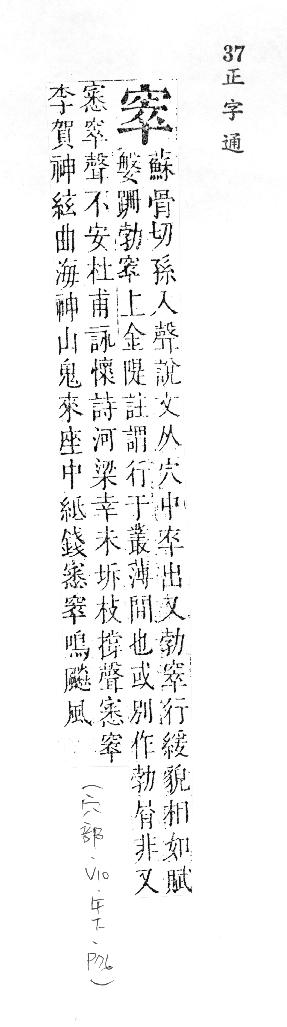 37正字通
窣
蘇骨切孫入聲說文从穴中卒出又勃窣行緩貌相如賦
媻跚勃窣上金隄註謂行于叢薄間也或別作勃窣非又
窸窣聲不安杜甫詠懷詩河梁幸未坼枝撐聲窸窣
李賀神絃曲海神山鬼來座中紙錢窸窣鳴飇風
(穴部、V10、午下、P76)